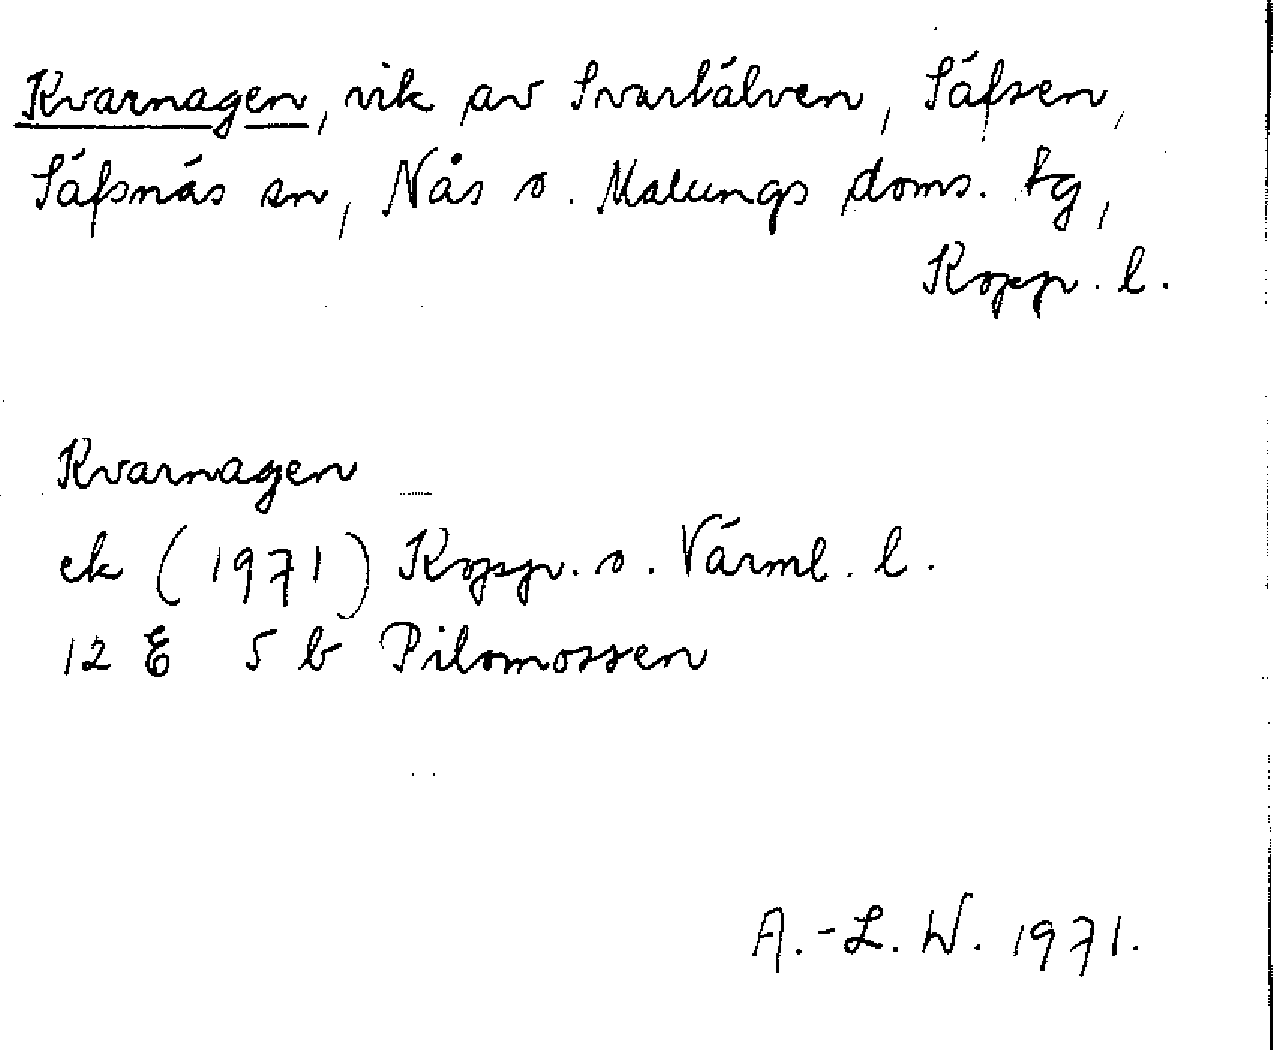 Kvarnagen, vik av Svartälven, Säfsen,
Säfsnäs sn, Nås o. Malungs doms. tg,
Kopp. l.
Kvarnagen
ek (1971) Kopp. o. Värml. l.
12 E 5 b Pilomossen
A.-L. W. 1971.